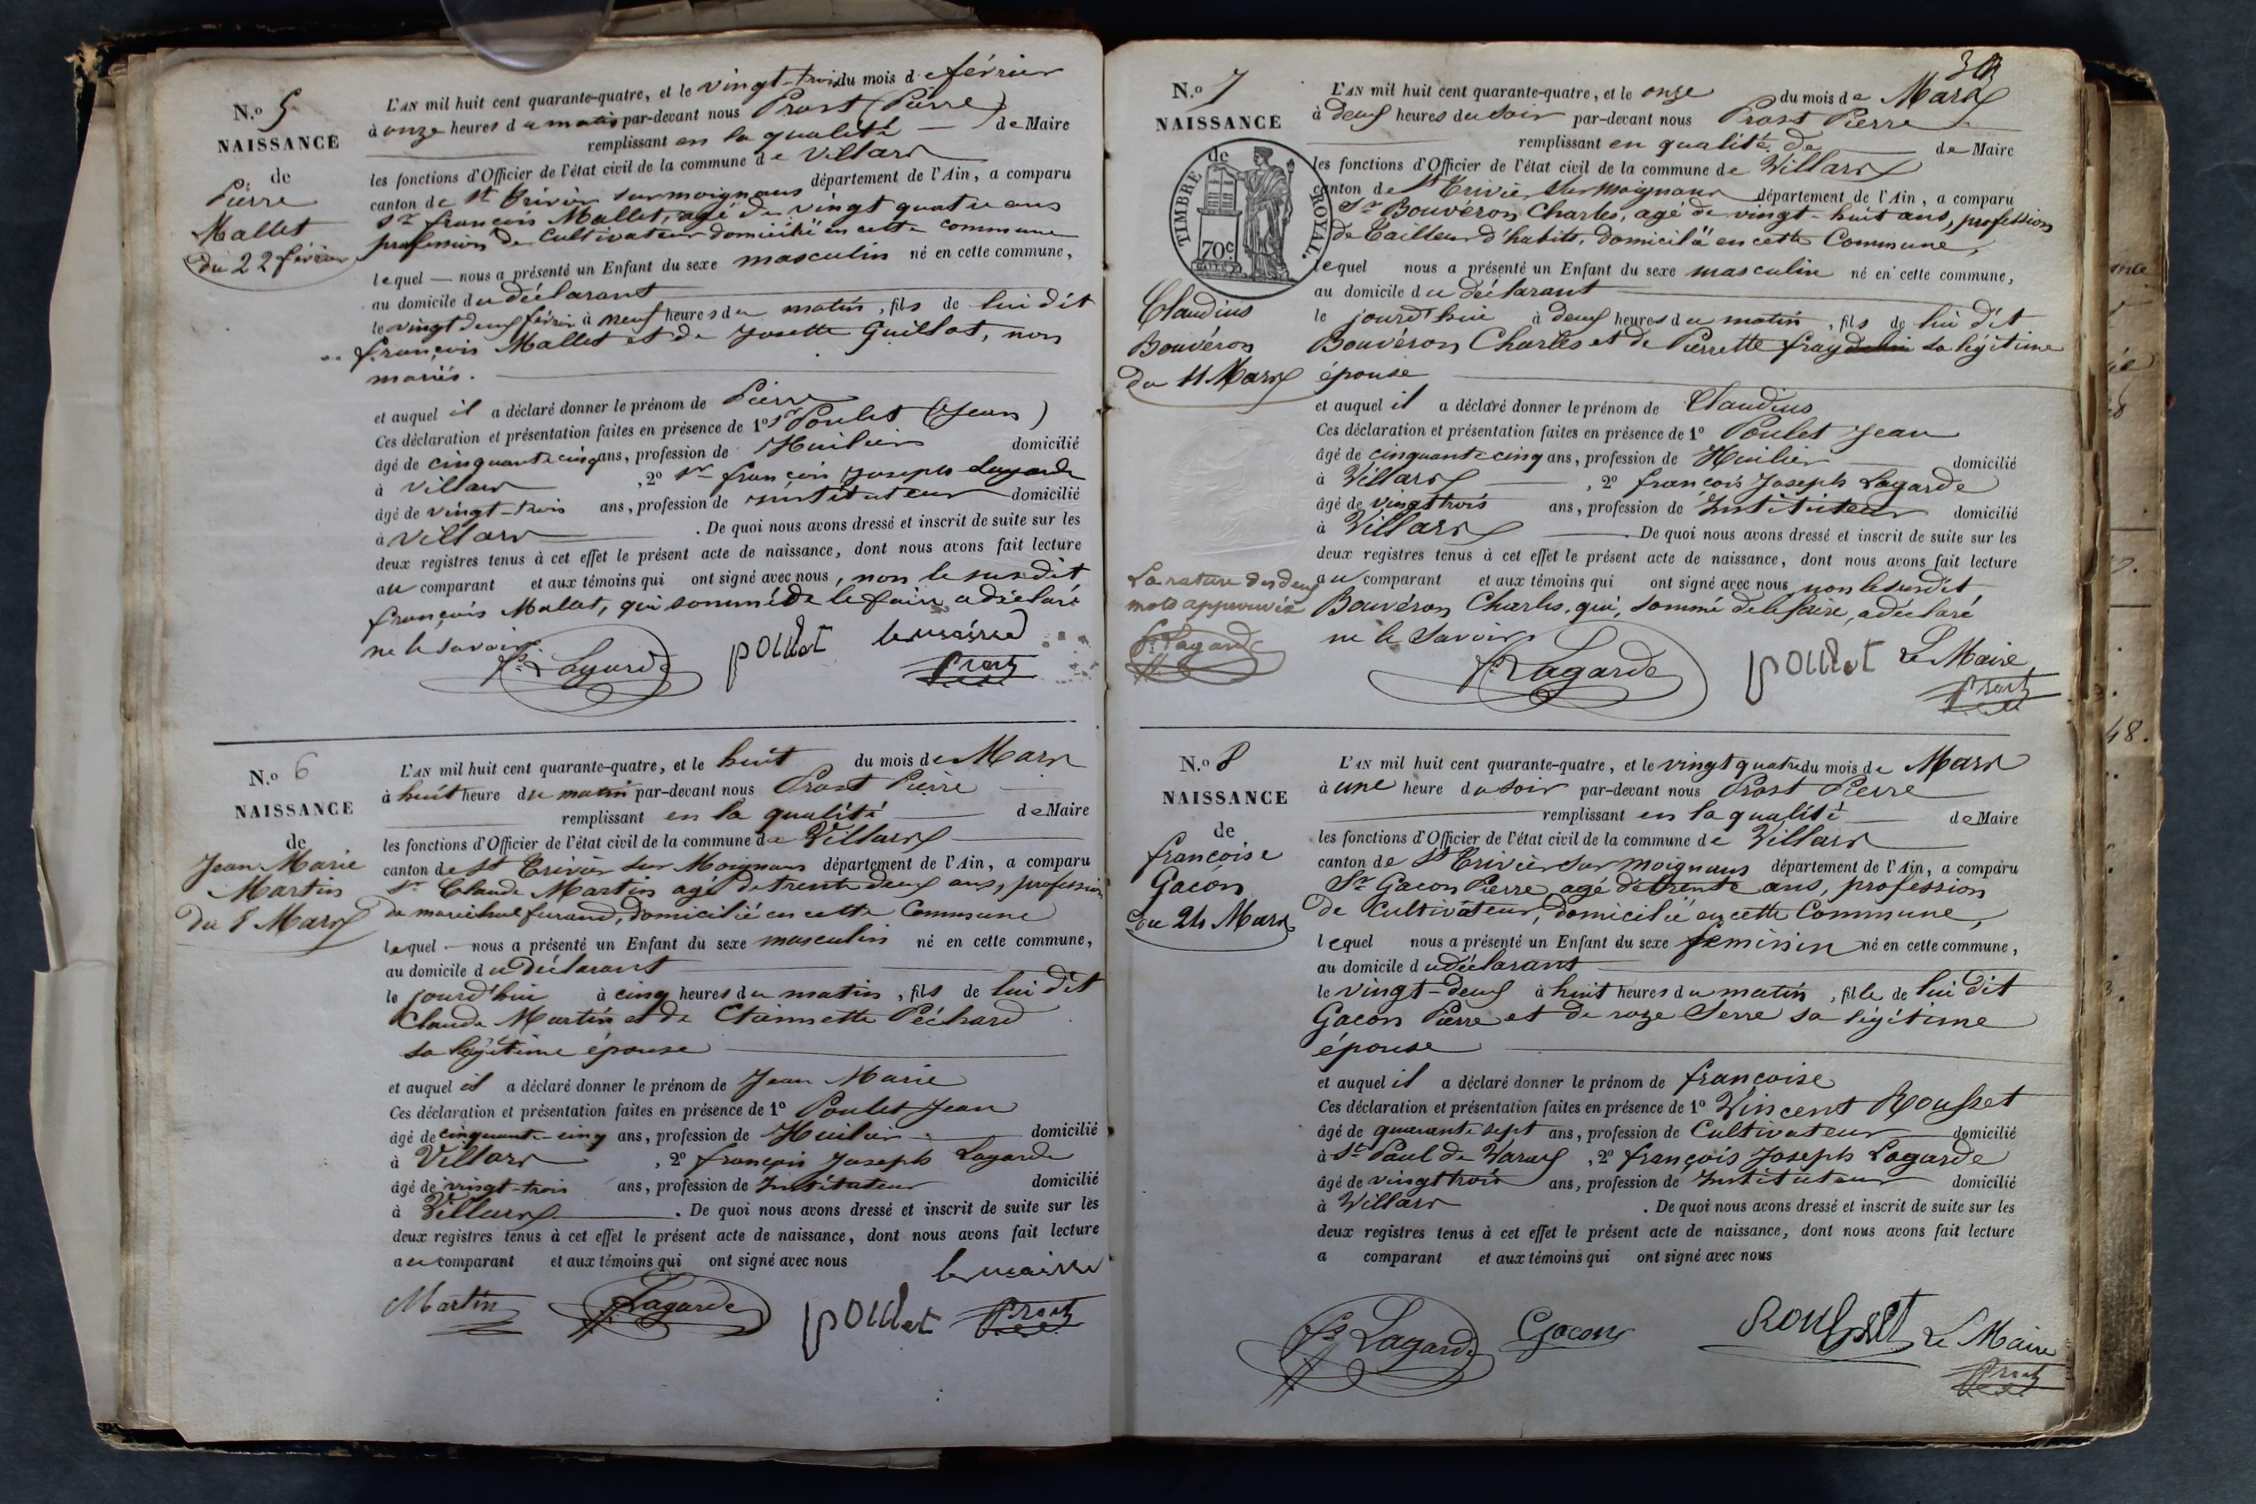 N.º 5
NAISSANCE
de
Pierre
Mallet
du 22 février
L'AN mil huit cent quarante-quatre, et le vingt-trois du mois de février
à onze heures du matin par-devant nous Prost (Pierre)
remplissant en la qualité de Maire
les fonctions d'Officier de l'état civil de la commune de Villars
canton de St Trivier sur moignans département de l'Ain, a comparu
Sr françois Mallet, agé de vingt quatre ans
profession de Cultivateur domicilié en cette commune
lequel nous a présenté un Enfant du sexe masculin né en cette commune,
au domicile du déclarant
le vingt deux février à neuf heures du matin, fils de lui dit
françois Mallet et de Josette Guillot, non
mariés.
et auquel il a déclaré donner le prénom de Pierre
Ces déclaration et présentation faites en présence de 1º Sr Poulet (Jean)
âgé de cinquante cinq ans, profession de Huilier domicilié
à Villars, 2º Sr françois Joseph Lagarde
âgé de vingt-trois ans, profession de instituteur domicilié
à Villars. De quoi nous avons dressé et inscrit de suite sur les
deux registres tenus à cet effet le présent acte de naissance, dont nous avons fait lecture
au comparant et aux témoins qui ont signé avec nous, non le susdit
françois Mallet, qui sommé de le faire a déclaré
ne le savoir.
Fs Lagarde poulet le maire
Prost
N.º 6
NAISSANCE
de
Jean Marie
Martin
du 8 Mars
L'AN mil huit cent quarante-quatre, et le huit du mois de Mars
à huit heure du matin par-devant nous Prost Pierre
remplissant en la qualité de Maire
les fonctions d'Officier de l'état civil de la commune de Villars
canton de St Trivier sur Moignans département de l'Ain, a comparu
Sr Claude Martin agé de trente deux ans, profession
de maréchal ferand, domicilié en cette Commune
lequel nous a présenté un Enfant du sexe masculin né en cette commune,
au domicile du déclarant
le jourd'hui à cinq heures du matin, fils de lui dit
Claude Martin et de Etiennette Péchard
sa légitime épouse
et auquel il a déclaré donner le prénom de Jean Marie
Ces déclaration et présentation faites en présence de 1º Poulet Jean
âgé de cinquante-cinq ans, profession de Huilier domicilié
à Villars, 2º françois Joseph Lagarde
âgé de vingt-trois ans, profession de Instituteur domicilié
à Villars. De quoi nous avons dressé et inscrit de suite sur les
deux registres tenus à cet effet le présent acte de naissance, dont nous avons fait lecture
au comparant et aux témoins qui ont signé avec nous
le maire
Martin Fs Lagarde poulet Prost
N.º 7
NAISSANCE
de
TIMBRE ROYAL.
70c
Claudius
Bouvéron
du 11 Mars
L'AN mil huit cent quarante-quatre, et le onze du mois de Mars
à deux heures du soir par-devant nous Prost Pierre
remplissant en qualité de de Maire
les fonctions d'Officier de l'état civil de la commune de Villars
canton de St Trivier sur moignans département de l'Ain, a comparu
Sr Bouvéron Charles, agé de vingt-huit ans, profession
de Tailleur d'habits, domicilié en cette Commune,
lequel nous a présenté un Enfant du sexe masculin né en cette commune,
au domicile du déclarant
le jourd'hui à deux heures du matin, fils de lui dit
Bouvéron Charles et de Pierrette fray sa légitime
épouse
et auquel il a déclaré donner le prénom de Claudius
Ces déclaration et présentation faites en présence de 1º Poulet Jean
âgé de cinquante cinq ans, profession de Huilier domicilié
à Villars, 2º françois Joseph Lagarde
âgé de vingt trois ans, profession de Instituteur domicilié
à Villars. De quoi nous avons dressé et inscrit de suite sur les
deux registres tenus à cet effet le présent acte de naissance, dont nous avons fait lecture
au comparant et aux témoins qui ont signé avec nous non le susdit
Bouvéron Charles, qui, sommé de le faire, a déclaré
ne le savoir
La rature des deux
mots approuvée
Fs Lagarde
Fs Lagarde poulet Le Maire
Prost
N.º 8
NAISSANCE
de
françoise
Gacon
du 24 Mars
L'AN mil huit cent quarante-quatre, et le vingt quatre du mois de Mars
à une heure du soir par-devant nous Prost Pierre
remplissant en la qualité de Maire
les fonctions d'Officier de l'état civil de la commune de Villars
canton de St Trivier sur moignans département de l'Ain, a comparu
Sr Gacon Pierre agé de trente ans, profession
de Cultivateur, domicilié en cette Commune,
lequel nous a présenté un Enfant du sexe feminin né en cette commune,
au domicile du déclarant
le vingt-deux à huit heures du matin, fille de lui dit
Gacon Pierre et de roze Serre sa légitime
épouse
et auquel il a déclaré donner le prénom de françoise
Ces déclaration et présentation faites en présence de 1º Vincent Rousset
âgé de quarante sept ans, profession de Cultivateur domicilié
à St Paul de Varax, 2º françois Joseph Lagarde
âgé de vingt trois ans, profession de Instituteur domicilié
à Villars. De quoi nous avons dressé et inscrit de suite sur les
deux registres tenus à cet effet le présent acte de naissance, dont nous avons fait lecture
a comparant et aux témoins qui ont signé avec nous
Fs Lagarde Gacon Rousset Le Maire
Prost